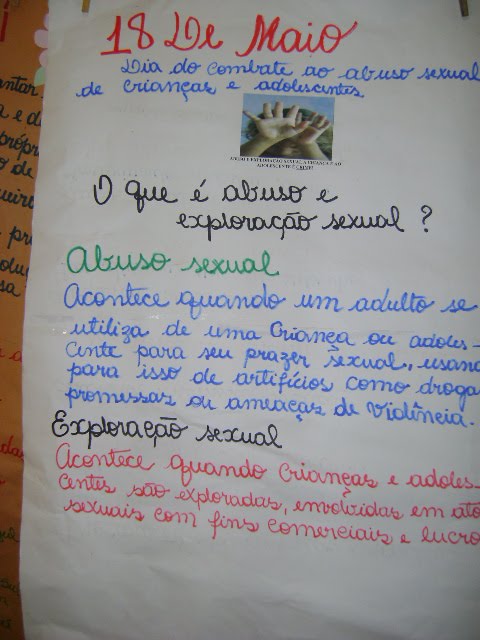 18 De Maio
Dia do combate ao abuso sexual
de crianças e adolescentes
ABUSO E EXPLORAÇÃO SEXUAL A CRIANÇA E AO
ADOLESCENTE É CRIME!
O que é abuso e
exploração sexual ?
Abuso sexual
Acontece quando um adulto se
utiliza de uma Criança ou adoles-
cente para seu prazer sexual, usand
para isso de artifícios como droga
promessas ou ameaças de violência.
Exploração sexual
Acontece quando crianças e adoles-
centes são exploradas, envolvidas em ato
sexuais com fins comerciais e lucro